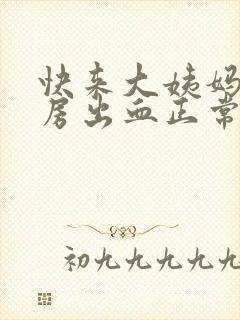 快来大姨妈
房出血正常
初九九九九九